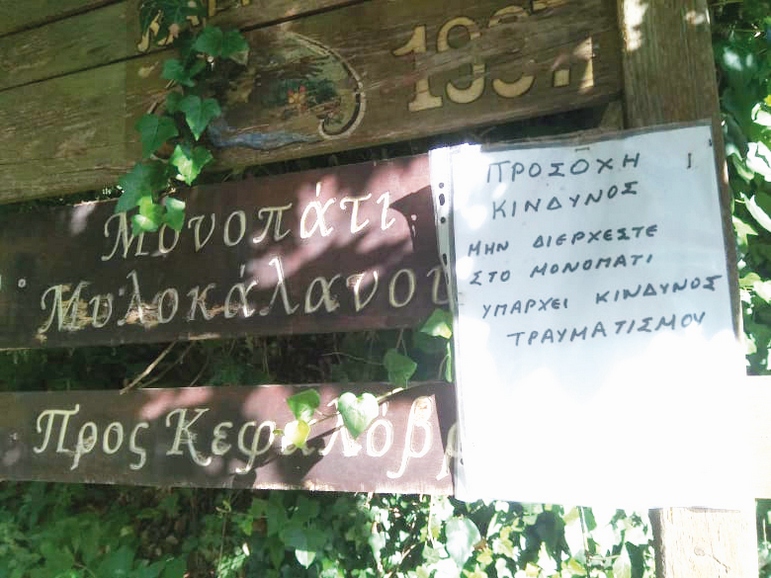 1997
Μονοπάτι
Μυλοκάλανου
Προς Κεφαλόβρ
ΠΡΟΣΟΧΗ
ΚΙΝΔΥΝΟΣ
ΜΗΝ ΔΙΕΡΧΕΣΤΕ
ΣΤΟ ΜΟΝΟΠΑΤΙ
ΥΠΑΡΧΕΙ ΚΙΝΔΥΝΟΣ
ΤΡΑΥΜΑΤΙΣΜΟΥ